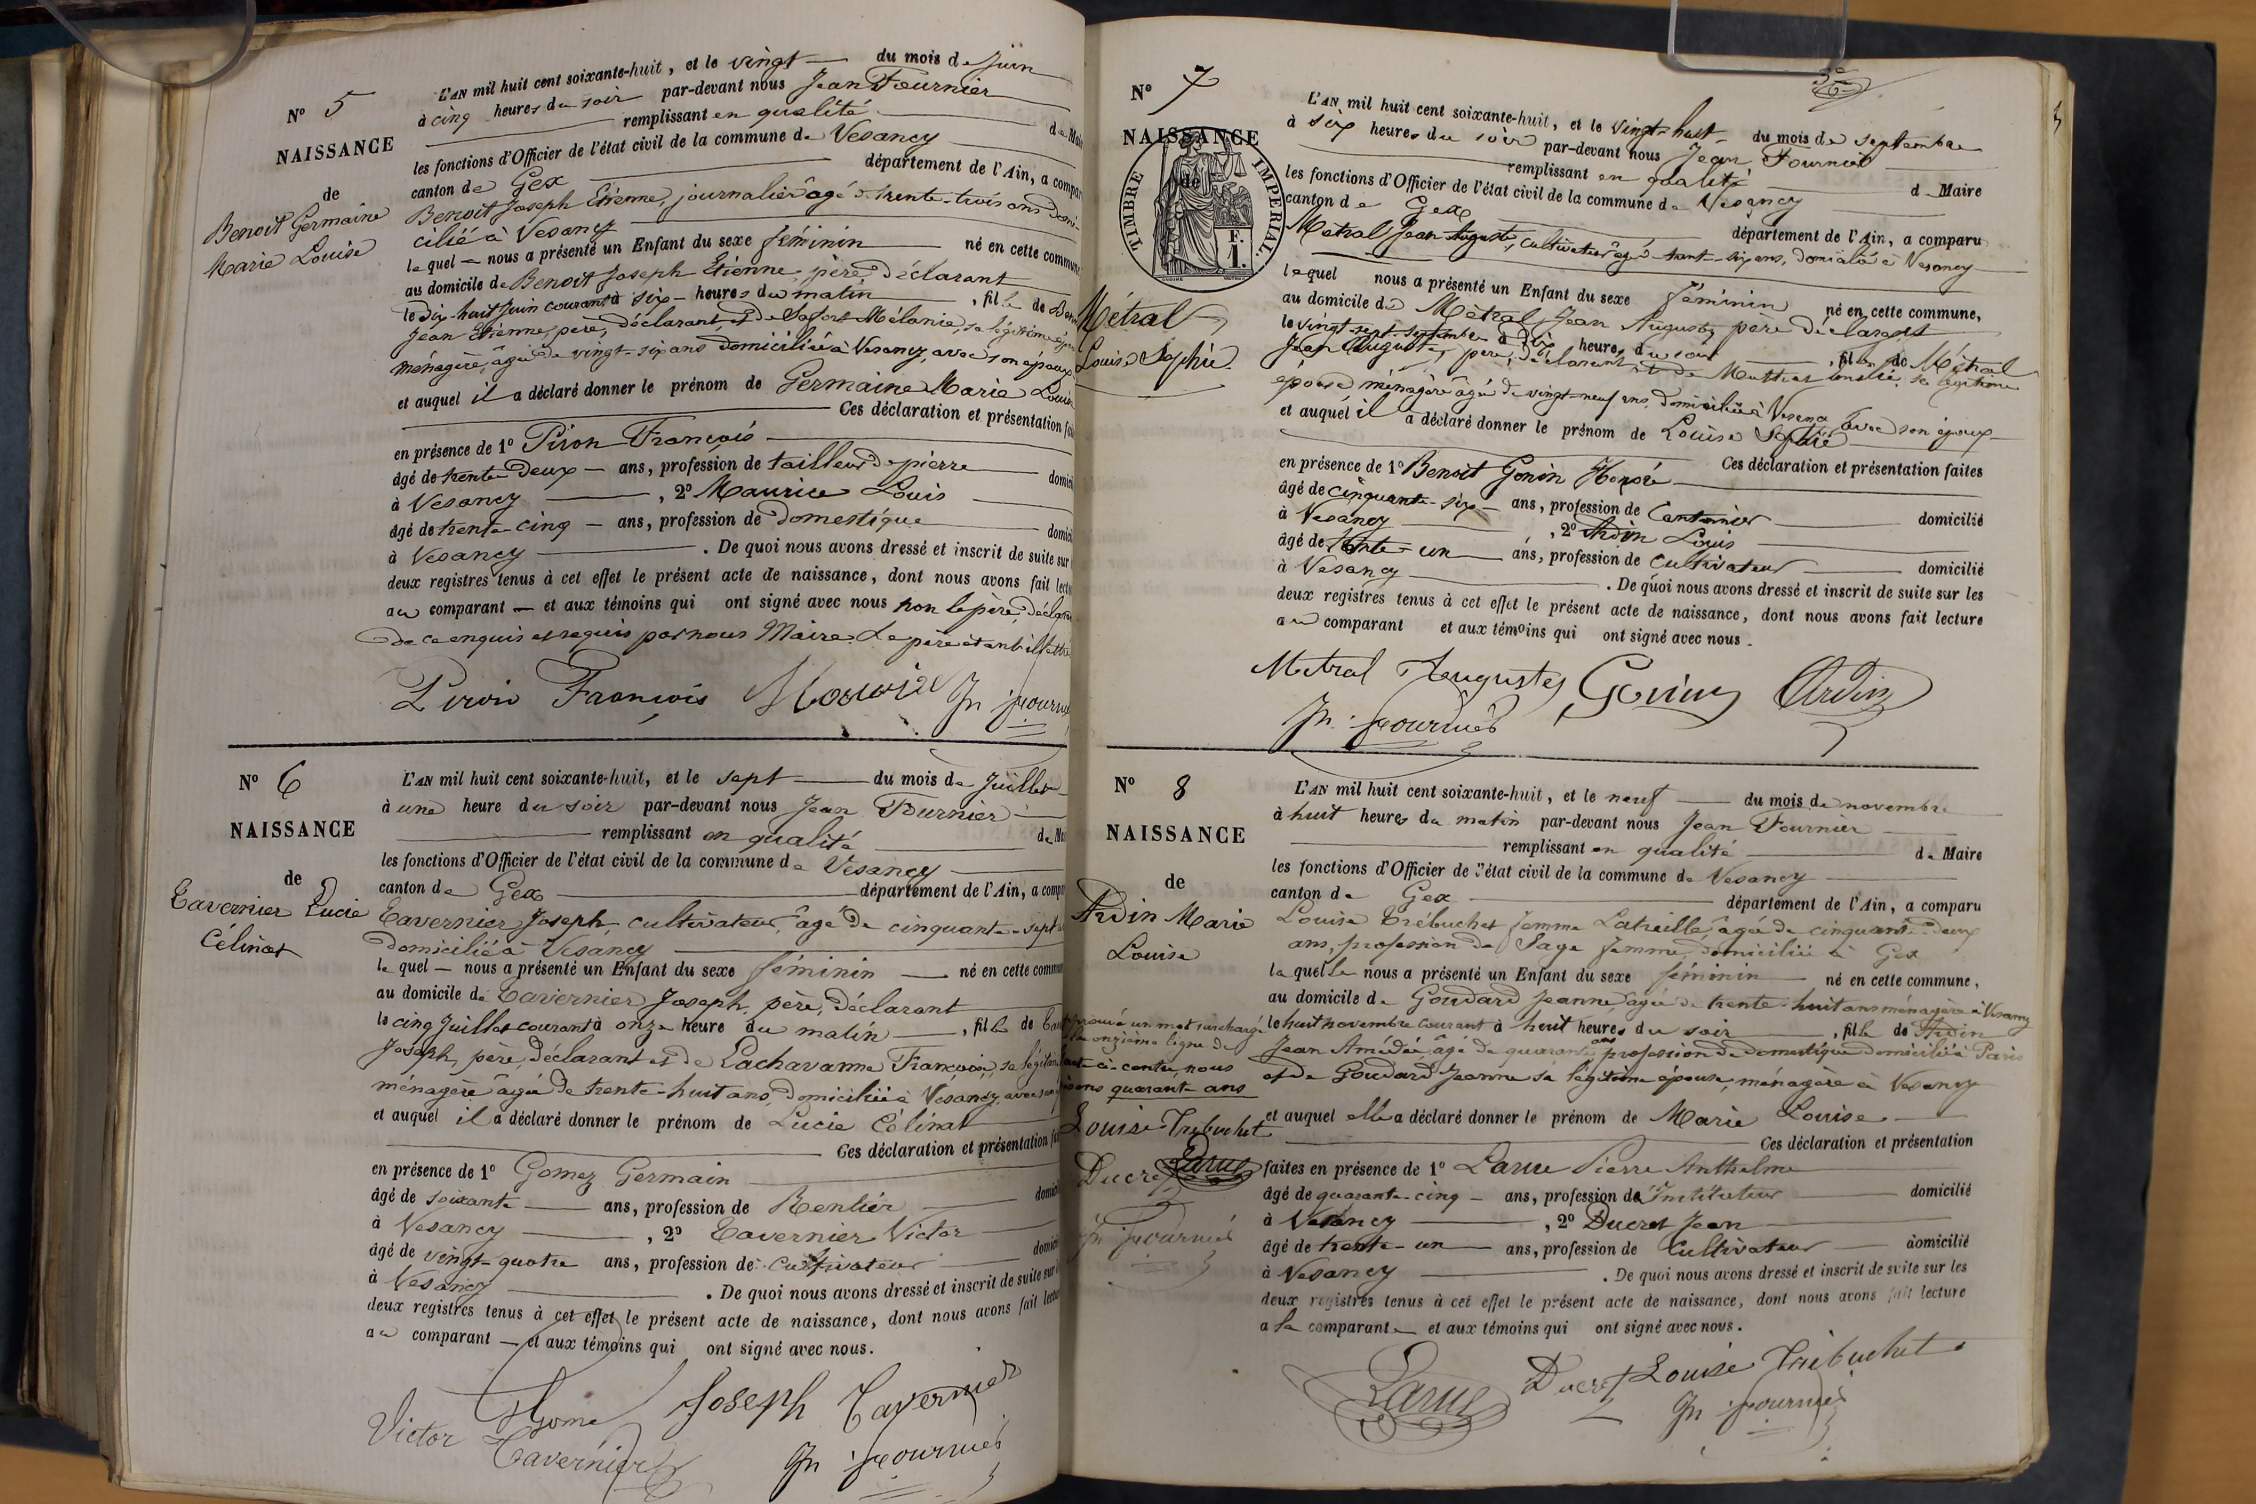 N° 5
NAISSANCE
de
Benoit Germaine
Marie Louise
L'AN mil huit cent soixante-huit, et le vingt du mois de Juin
à cinq heures du soir par-devant nous Jean Fournier
remplissant en qualité de Mai
les fonctions d'Officier de l'état civil de la commune de Vesancy
canton de Gex département de l'Ain, a compar
Benoit Joseph Etienne, journalier âgé de trente-trois ans domi-
cilié à Vesancy
lequel — nous a présenté un Enfant du sexe féminin né en cette commune
au domicile de Benoit Joseph Etienne, père déclarant
le dix-huit Juin courant à six heures du matin, fille de Benoi
Jean Etienne, père, déclarant, et de Mélanie, sa légitime
ménagère, âgée de vingt-six ans domiciliée à Vesancy, avec son époux
et auquel il a déclaré donner le prénom de Germaine Marie Louise
Ces déclaration et présentation fai
en présence de 1° Piron François
âgé de trente deux — ans, profession de tailleur de pierre domici
à Vesancy, 2° Maurice Louis
âgé de trente cinq — ans, profession de domestique domici
à Vesancy. De quoi nous avons dressé et inscrit de suite sur
deux registres tenus à cet effet le présent acte de naissance, dont nous avons fait lectu
au comparant — et aux témoins qui ont signé avec nous non le père, déclara
de ce enquis et requis par nous Maire. Le père étant illettré
Piron François Maurice Jn fournie
N° 6
NAISSANCE
de
Tavernier Lucie
Célinat
L'AN mil huit cent soixante-huit, et le sept du mois de Juillet
à une heure du soir par-devant nous Jean Fournier
remplissant en qualité de Mai
les fonctions d'Officier de l'état civil de la commune de Vesancy
canton de Gex département de l'Ain, a compa
Tavernier Joseph, cultivateur, âgé de cinquante-sept
domicilié à Vesancy
lequel — nous a présenté un Enfant du sexe féminin — né en cette commun
au domicile de Tavernier Joseph, père, déclarant
le cinq Juillet courant à onze heure du matin, fille de Tav
Joseph, père, déclarant et de Lachavanne Françoise, sa légitim
ménagère âgée de trente-huit ans, domiciliée à Vesancy, avec son
et auquel il a déclaré donner le prénom de Lucie Célinat
Ces déclaration et présentation fai
en présence de 1° Gomez Germain
âgé de soixante ans, profession de Rentier domici
à Vesancy, 2° Tavernier Victor
âgé de vingt-quatre ans, profession de cultivateur domici
à Vesancy. De quoi nous avons dressé et inscrit de suite sur
deux registres tenus à cet effet le présent acte de naissance, dont nous avons fait lectu
au comparant — et aux témoins qui ont signé avec nous.
Gome Joseph Tavernier
Victor Tavernier Jn fournié
N° 7
NAISSANCE
de
TIMBRE IMPERIAL.
F.
1.
Métral
Louise Sophie
L'AN mil huit cent soixante-huit, et le vingt-huit du mois de septembre
à six heures du soir par-devant nous Jean Fournier
remplissant en qualité de Maire
les fonctions d'Officier de l'état civil de la commune de Vesancy
canton de Gex département de l'Ain, a comparu
Métral Jean Auguste, cultivateur âgé de trente-six ans, domicilié à Vesancy
lequel nous a présenté un Enfant du sexe féminin né en cette commune,
au domicile de Métral Jean Auguste, père déclarant
le vingt-sept septembre à dix heures du soir, fille de Métral
Jean Auguste, père, déclarant et de sa légitime
épouse ménagère âgée de vingt-neuf ans, domiciliée à Vesancy avec son époux
et auquel il a déclaré donner le prénom de Louise Sophie
Ces déclaration et présentation faites
en présence de 1° Benoit Gonin Honoré
âgé de cinquante-six — ans, profession de Cantonnier domicilié
à Vesancy, 2° Ardin Louis
âgé de trente-un ans, profession de cultivateur domicilié
à Vesancy. De quoi nous avons dressé et inscrit de suite sur les
deux registres tenus à cet effet le présent acte de naissance, dont nous avons fait lecture
au comparant et aux témoins qui ont signé avec nous.
Metral Auguste Gonin Ardin
Jn fournié
N° 8
NAISSANCE
de
Ardin Marie
Louise
L'AN mil huit cent soixante-huit, et le neuf du mois de novembre
à huit heures du matin par-devant nous Jean Fournier
remplissant en qualité de Maire
les fonctions d'Officier de l'état civil de la commune de Vesancy
canton de Gex département de l'Ain, a comparu
Louise Trébuchet femme Latreille âgée de cinquante-deux
ans, profession de Sage femme, domiciliée à Gex
laquelle nous a présenté un Enfant du sexe féminin né en cette commune,
au domicile de Goudard Jeanne âgée de trente-huit ans ménagère à Vesancy
le huit novembre courant à huit heures du soir, fille de Ardin
Jean Amédée âgé de quarante ans profession de domestique domicilié à Paris
et de Goudard Jeanne sa légitime épouse, ménagère à Vesancy
et auquel elle a déclaré donner le prénom de Marie Louise
Ces déclaration et présentation
faites en présence de 1° Larue Pierre Anthelme
âgé de quarante-cinq — ans, profession de Instituteur domicilié
à Vesancy, 2° Ducret Jean
âgé de trente-un ans, profession de Cultivateur domicilié
à Vesancy. De quoi nous avons dressé et inscrit de suite sur les
deux registres tenus à cet effet le présent acte de naissance, dont nous avons fait lecture
a la comparante et aux témoins qui ont signé avec nous.
Larue Ducret Louise Trébuchet
Jn fournié
un mot surchargé
la onzième ligne de
ci-contre, nous
quarante ans
Louise Trébuchet
Ducret Larue
Jn fournié